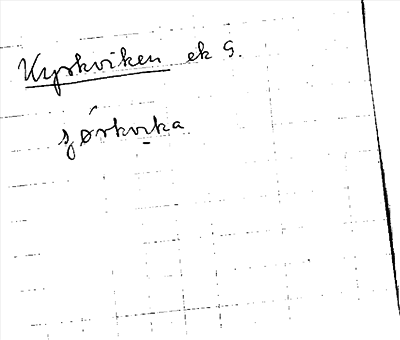 Kyrkviken ek G.
ʒǿrkvi̱ka